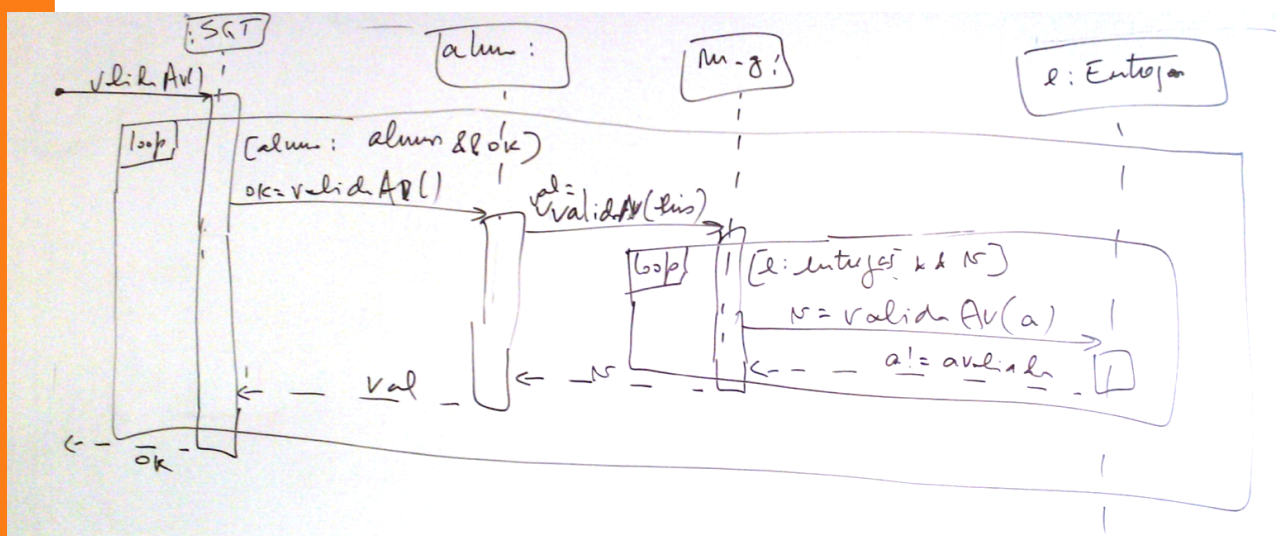 :SGT
alum:
m-g:
e: Entrega
loop
[alum: alunos && ok]
ok=validaAv()
val=
validaAv(this)
loop
[e: entregas && N]
N = valida Av(a)
a != avaliada
N
val
ok